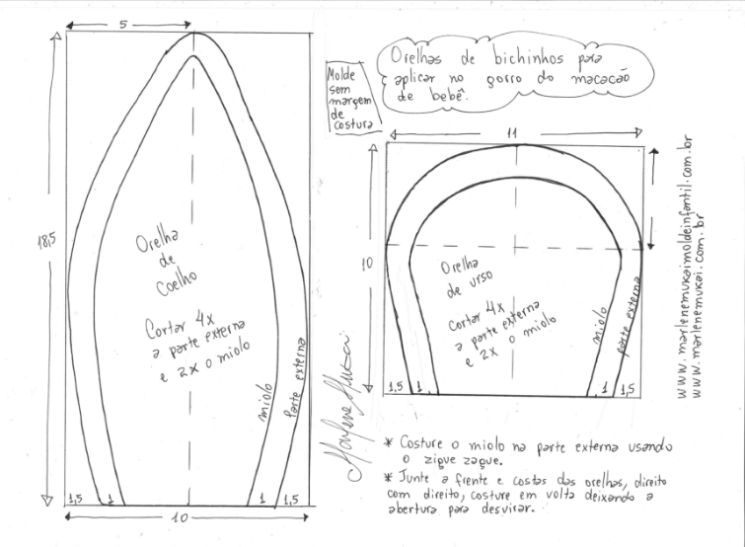 5
18,5
Orelha
de
Coelho
Cortar 4x
a parte externa
e 2x o miolo
miolo
Parte externa
1,5
1
1
1,5
10
Molde
sem
margem
de
costura
Orelhas de bichinhos para
aplicar no gorro do macacão
de bebê.
11
10
Orelha
de urso
Cortar 4x
a parte externa
e 2x o miolo
miolo
parte externa
1,5
1
1
1,5
Marlene Mukai
www.marlenemukaimoldeinfantil.com.br
www.marlenemukai.com.br
* Costure o miolo na parte externa usando
o zigue zague.
* Junte a frente e costas das orelhas, direito
com direito, costure em volta deixando a
abertura para desvirar.